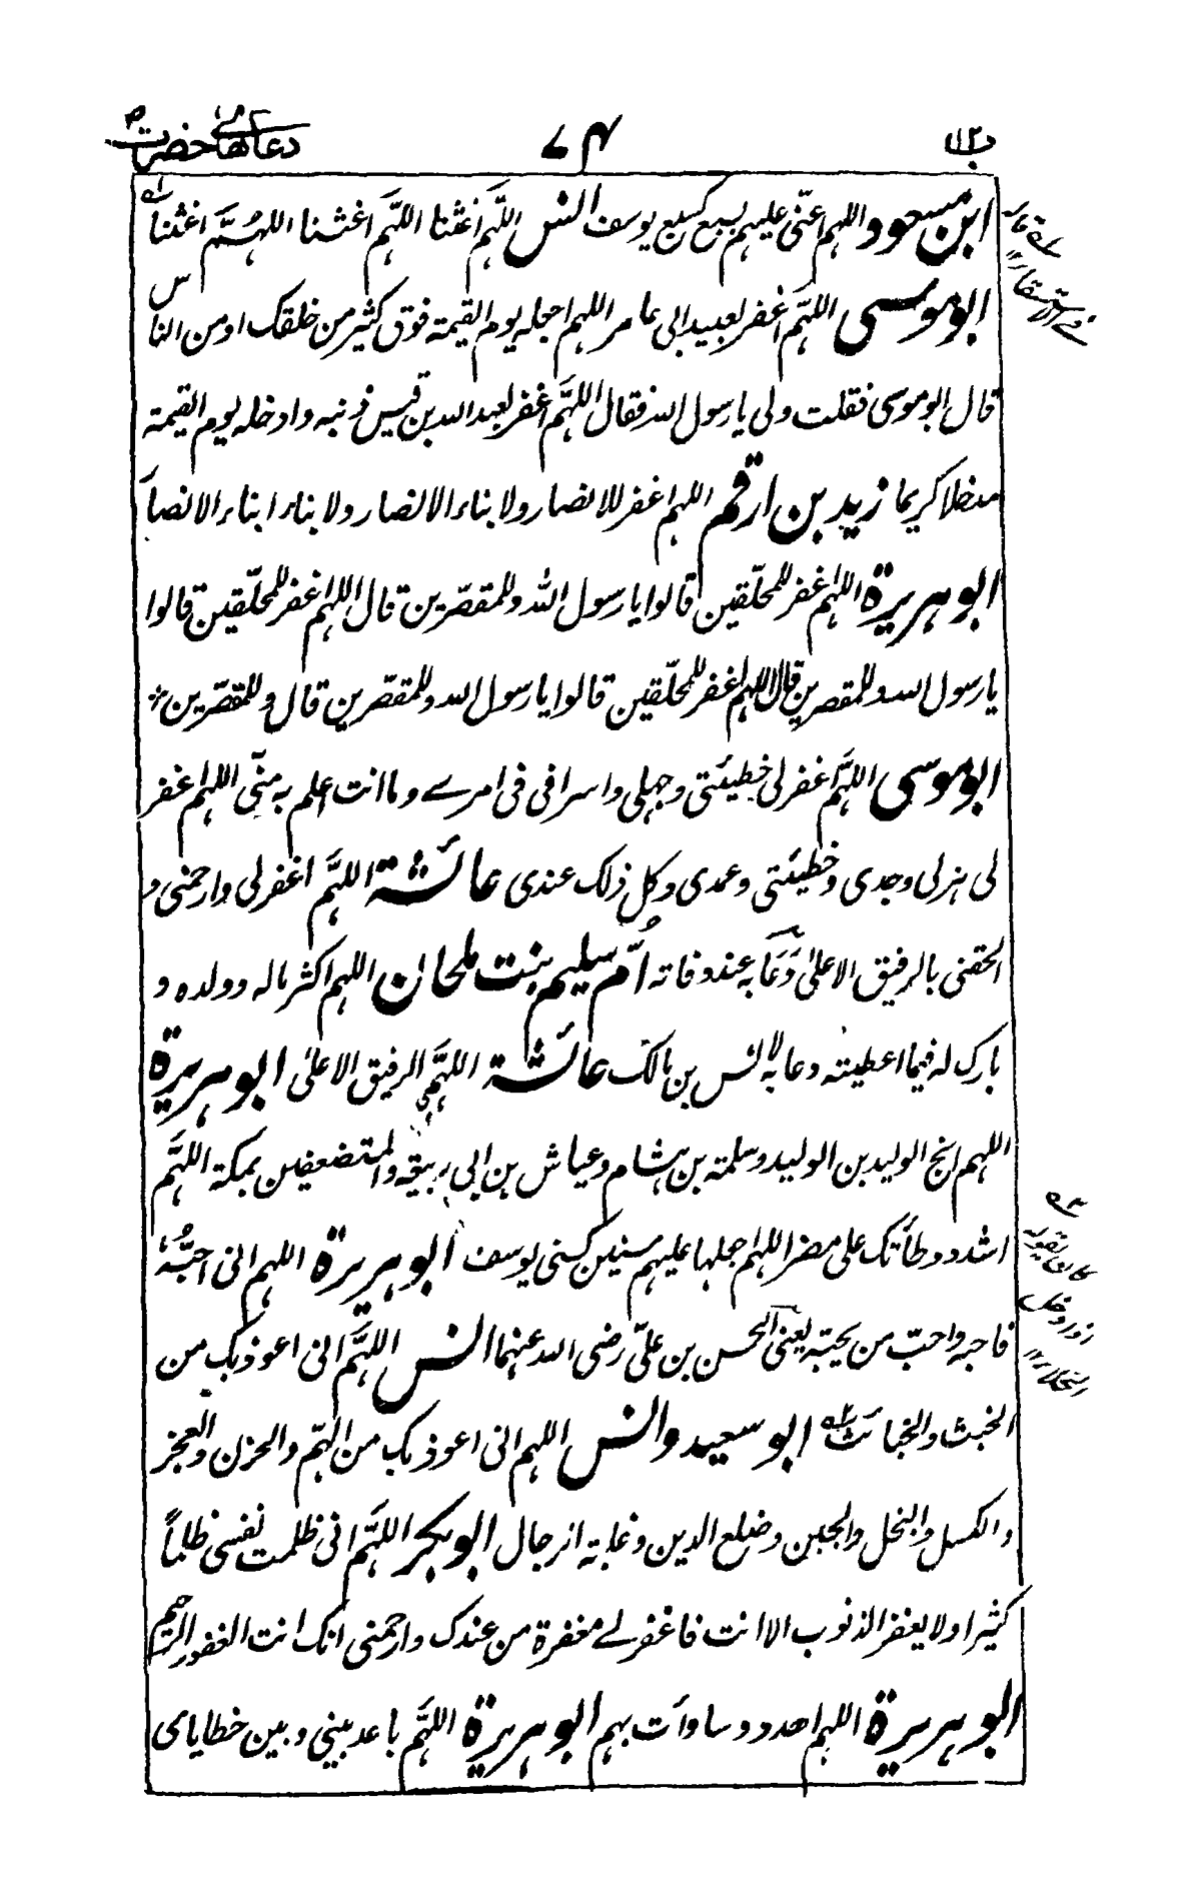 ب۱۲
۷۴
دعاهای حضرت ص
ابن مسعود اللهم اعنّى عليهم بسبع كسبع يوسف انس اللَّهم اغثنا اللَّهم اغثنا اللهُمَّ اغثنا
ابو موسى اللهَّم اغفر لعبيد ابى عامر اللهم اجعله يوم القيمة فوق كثير من خلقك او من الناس
قال ابو موسى فقلت ولى يا رسول الله فقال اللهَّم اغفر لعبد الله بن قيس ذنبه وادخله يوم القيمة
مدخلا كريما زيد بن ارقم اللهم اغفر للانصار ولابناء الانصار ولابناء ابناء الانصار
ابو هريرة اللهم اغفر للمحلّقين قالوا يا رسول الله وللمقصّرين قال اللهم اغفر للمحلّقين قالوا
يا رسول الله وللمقصرين قال اللهم اغفر للمحلّقين قالوا يا رسول الله وللمقصّرين قال وللمقصّرين
ابو موسى اللهَّم اغفر لى خطيئتى وجهلى واسرافى فى امرے وما انت اعلم به منّى اللهم اغفر
لى هزلى وجدى وخطيئتى وعمدى وكل ذلك عندى عائشة اللهَّم اغفر لى وارحمنى و
الحقنى بالرفيق الاعلىٰ دَعَا به عند وفاته اُمّ سليم بنت ملحان اللهم اكثر ماله وولده و
بارك له فيما اعطيته دعا به لانس بن مالك عائشة اللهَّم فى الرفيق الاعلىٰ ابو هريرة
اللهم انج الوليد بن الوليد وسلمة بن هشام وعياش بن ابى ربيعة والمستضعفين بمكة اللهَّم
اشدد وطأتك على مضر اللهم اجعلها عليهم سنين كسنى يوسف ابو هريرة اللهم انى احبُّهٗ
فاحبه واحبّ من يحبّه يعنى الحسن بن علىّ رضى الله عنهما انس اللهَّم انى اعوذ بك من
الخبث والخبائث ابو سعيد وانس اللهم انى اعوذ بك من الهمّ والحزن والعجز
والكسل والبخل والجبن وضلع الدين وغلبة الرجال ابو بكر اللهَّم انى ظلمت نفسى ظلماً
كثيرا ولا يغفر الذنوب الا انت فاغفر لے مغفرة من عندك وارحمنى انك انت الغفور الرحيم
ابو هريرة اللهم اهد دوسا وأت بهم ابو هريرة اللهَّم باعد بينى وبين خطاياى